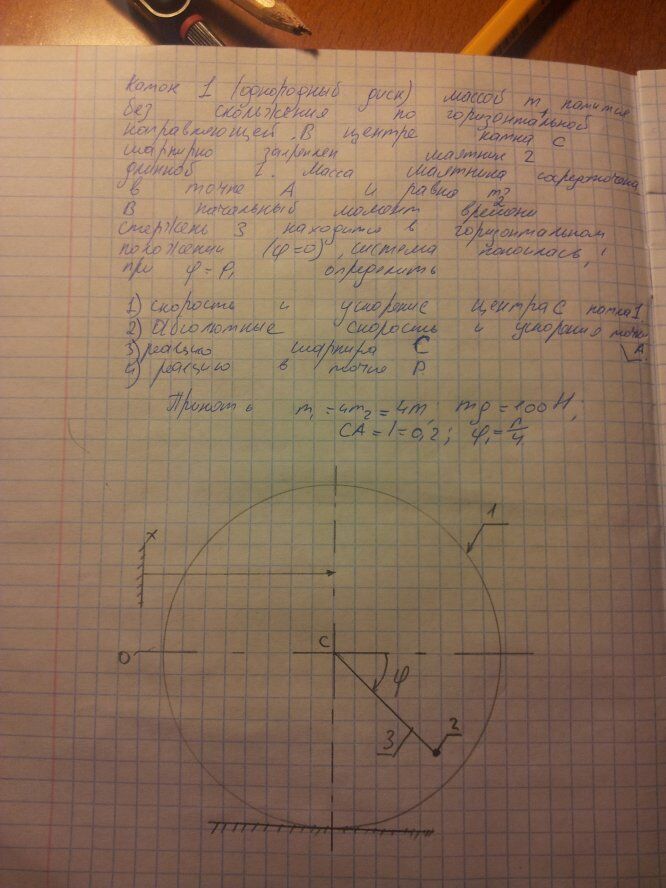 Каток 1 (однородный диск) массой m катится
без скольжения по горизонтальной
направляющей. В центре катка C
шарнирно закреплен маятник 2
длиной l. Масса маятника сосредоточена
в точке A и равна m2
В начальный момент времени
стержень 3 находится в горизонтальном
положении (φ=0), система покоилась,
при φ=φ1 определить
1) скорость и ускорение центра C катка 1
2) Абсолютные скорость и ускорение точки A.
3) реакцию шарнира C
4) реакцию в точке P
Принять m1=4m2=4m; mg=100Н,
CA=l=0,2; φ1=π/4
1
x
C
O
φ
2
3